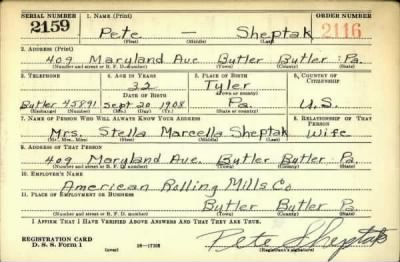 SERIAL NUMBER 1. NAME (Print) ORDER NUMBER
2159 Pete — Sheptak 2116
(First) (Middle) (Last)
2. ADDRESS (Print)
409 Maryland Ave Butler Butler Pa.
(Number and street or R. F. D. number) (Town) (County) (State)
3. TELEPHONE 4. AGE IN YEARS 5. PLACE OF BIRTH 6. COUNTRY OF CITIZENSHIP
32 Tyler
DATE OF BIRTH (Town or county)
Butler 45891 Sept 20 1908 Pa. U.S.
(Exchange) (Number) (Mo.) (Day) (Yr.) (State or country)
7. NAME OF PERSON WHO WILL ALWAYS KNOW YOUR ADDRESS 8. RELATIONSHIP OF THAT PERSON
Mrs. Stella Marcella Sheptak Wife
(Mr., Mrs., Miss) (First) (Middle) (Last)
9. ADDRESS OF THAT PERSON
409 Maryland Ave. Butler Butler Pa.
(Number and street or R. F. D. number) (Town) (County) (State)
10. EMPLOYER'S NAME
American Rolling Mills Co
11. PLACE OF EMPLOYMENT OR BUSINESS
Butler Butler Pa.
(Number and street or R. F. D. number) (Town) (County) (State)
I AFFIRM THAT I HAVE VERIFIED ABOVE ANSWERS AND THAT THEY ARE TRUE.
REGISTRATION CARD
D. S. S. Form 1 (over) 16—17105 Pete Sheptak
(Registrant's signature)